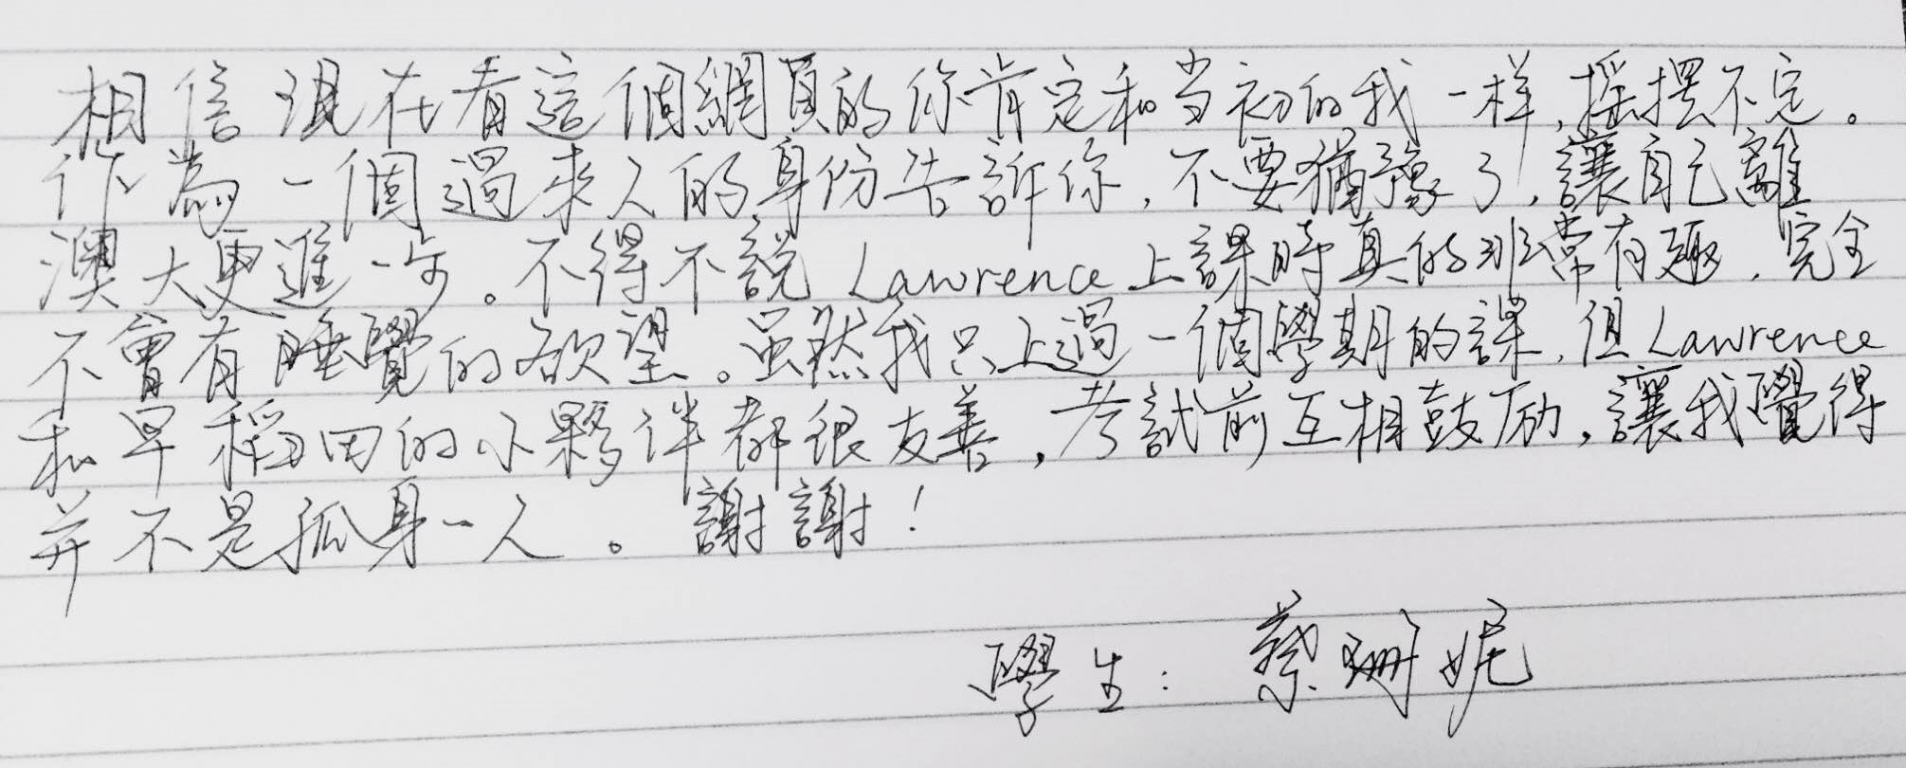 相信現在看這個網頁的你肯定和当初的我一样,摇摆不定。
作為一個過來人的身份告訴你,不要猶豫了,讓自己離
澳大更進一步。不得不說 Lawrence 上課時真的非常有趣,完全
不會有睡覺的欲望。虽然我只上過一個學期的課,但Lawrence
和早稻田的小夥伴都很友善,考試前互相鼓励,讓我覺得
并不是孤身一人。謝謝!
學生:蔡珊妮